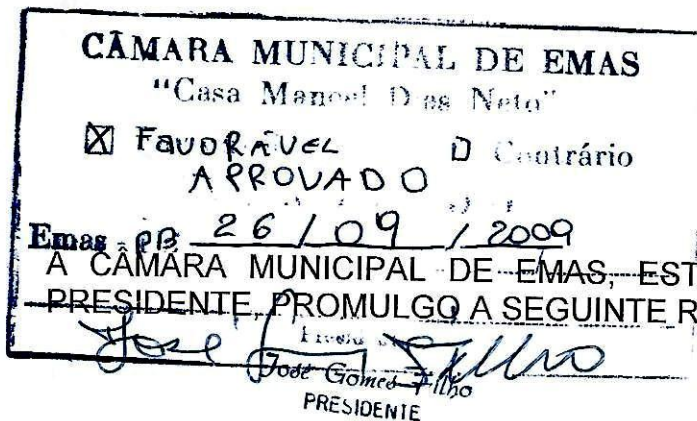 CÂMARA MUNICIPAL DE EMAS
"Casa Manoel Dias Neto"
☒ FAVORÁVEL ☐ Contrário
APROVADO
Emas - PB 26 / 09 / 2009
A CÂMARA MUNICIPAL DE EMAS, EST
PRESIDENTE, PROMULGO A SEGUINTE R
José Gomes Filho
José Gomes Filho
PRESIDENTE